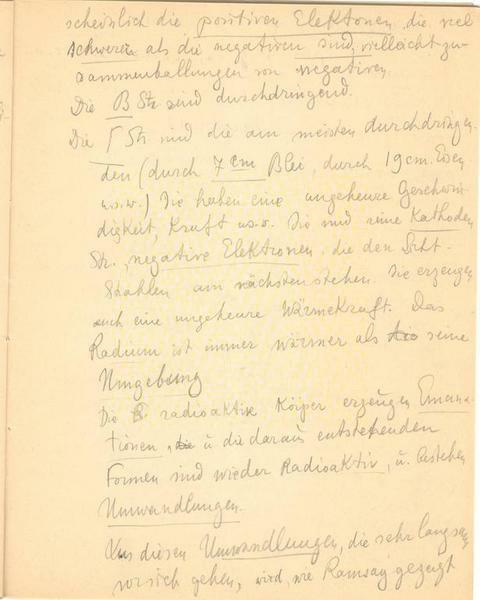 scheinlich die positiven Elektonen die viel
schwerer als die negativen sind, vielleicht zu-
sammenballungen von negativen.
Die β Str sind durchdringend.
Die Γ Str sind die am meisten durchdringen-
den (durch 7 cm Blei, durch 19 cm. Eisen
u.s.w.) Sie haben eine ungeheure Geschwin-
digkeit, Kraft u.s.w. Sie sind reine Kathoden
Str., negative Elektronen die den Licht-
strahlen am nächsten stehen. Sie erzeugen
auch eine ungeheure Wärmekraft. Das
Radium ist immer wärmer als die seine
Umgebung
Die radioaktiv Körper erzeugen Emana-
tionen, die u die daraus entstehenden
Formen sind wieder Radioaktiv, u. bestehen
Umwandlungen.
Aus diesen Umwandlungen, die sehr langsam
vor sich gehen, wird, wie Ramsay gezeigt